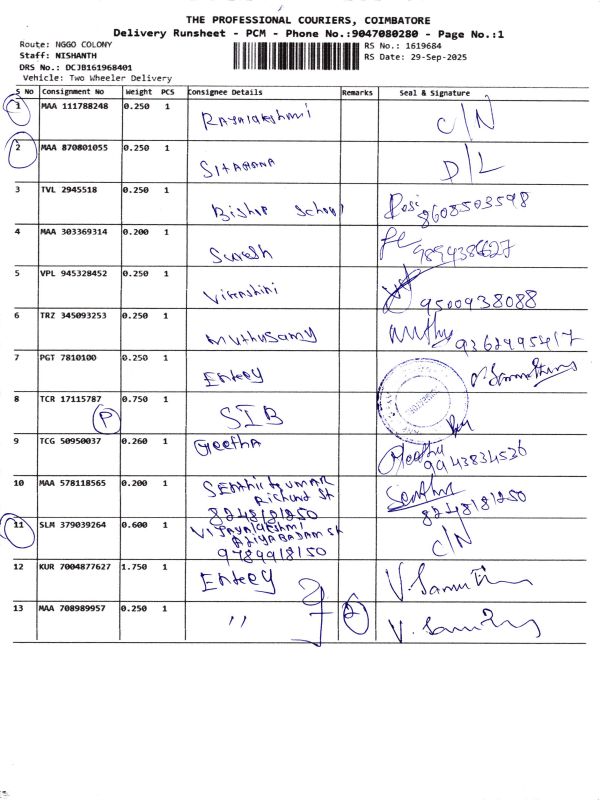 THE PROFESSIONAL COURIERS, COIMBATORE
Delivery Runsheet - PCM - Phone No.:9047080280 - Page No.:1
Route: NGGO COLONY
Staff: NISHANTH
DRS No.: DCJB161968401
Vehicle: Two Wheeler Delivery
RS No.: 1619684
RS Date: 29-Sep-2025
S No Consignment No Weight PCS Consignee Details Remarks Seal & Signature
1 MAA 111788248 0.250 1 Rajalakshmi C/N
2 MAA 870801055 0.250 1 D/L
3 TVL 2945518 0.250 1 Bishop School Rosi
8608503598
4 MAA 303369314 0.200 1 Suresh
9894386627
5 VPL 945328452 0.250 1
9500938088
6 TRZ 345093253 0.250 1 Muthusamy Muthu
7 PGT 7810100 0.250 1 Entey
8 TCR 17115787 0.750 1 SIB
P
9 TCG 50950037 0.260 1 Geetha Geetha
9943834536
10 MAA 578118565 0.200 1 Senthil Kumar
Richund St
8248181250
Senthu
8248181250
11 SLM 379039264 0.600 1 Vijayalakshmi
9789918150
C/N
12 KUR 7004877627 1.750 1 Entey
13 MAA 708989957 0.250 1 "
2